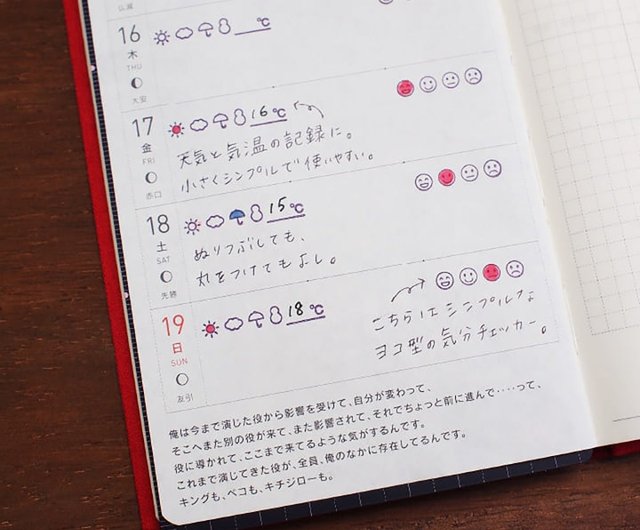 仏滅
16
木
THU
大安
℃
17
金
FRI
赤口
16℃
天気と気温の記録に。
小さくシンプルで使いやすい。
18
土
SAT
先勝
15℃
ぬりつぶしても、
丸をつけてもよし。
19
日
SUN
友引
18℃
こちらはシンプルな
ヨコ型の気分チェッカー。
俺は今まで演じた役から影響を受けて、自分が変わって、
そこへまた別の役が来て、また影響されて、それでちょっと前に進んで‥‥って、
役に導かれて、ここまで来てるような気がするんです。
これまで演じてきた役が、全員、俺のなかに存在してるんです。
キングも、ペコも、キチジローも。